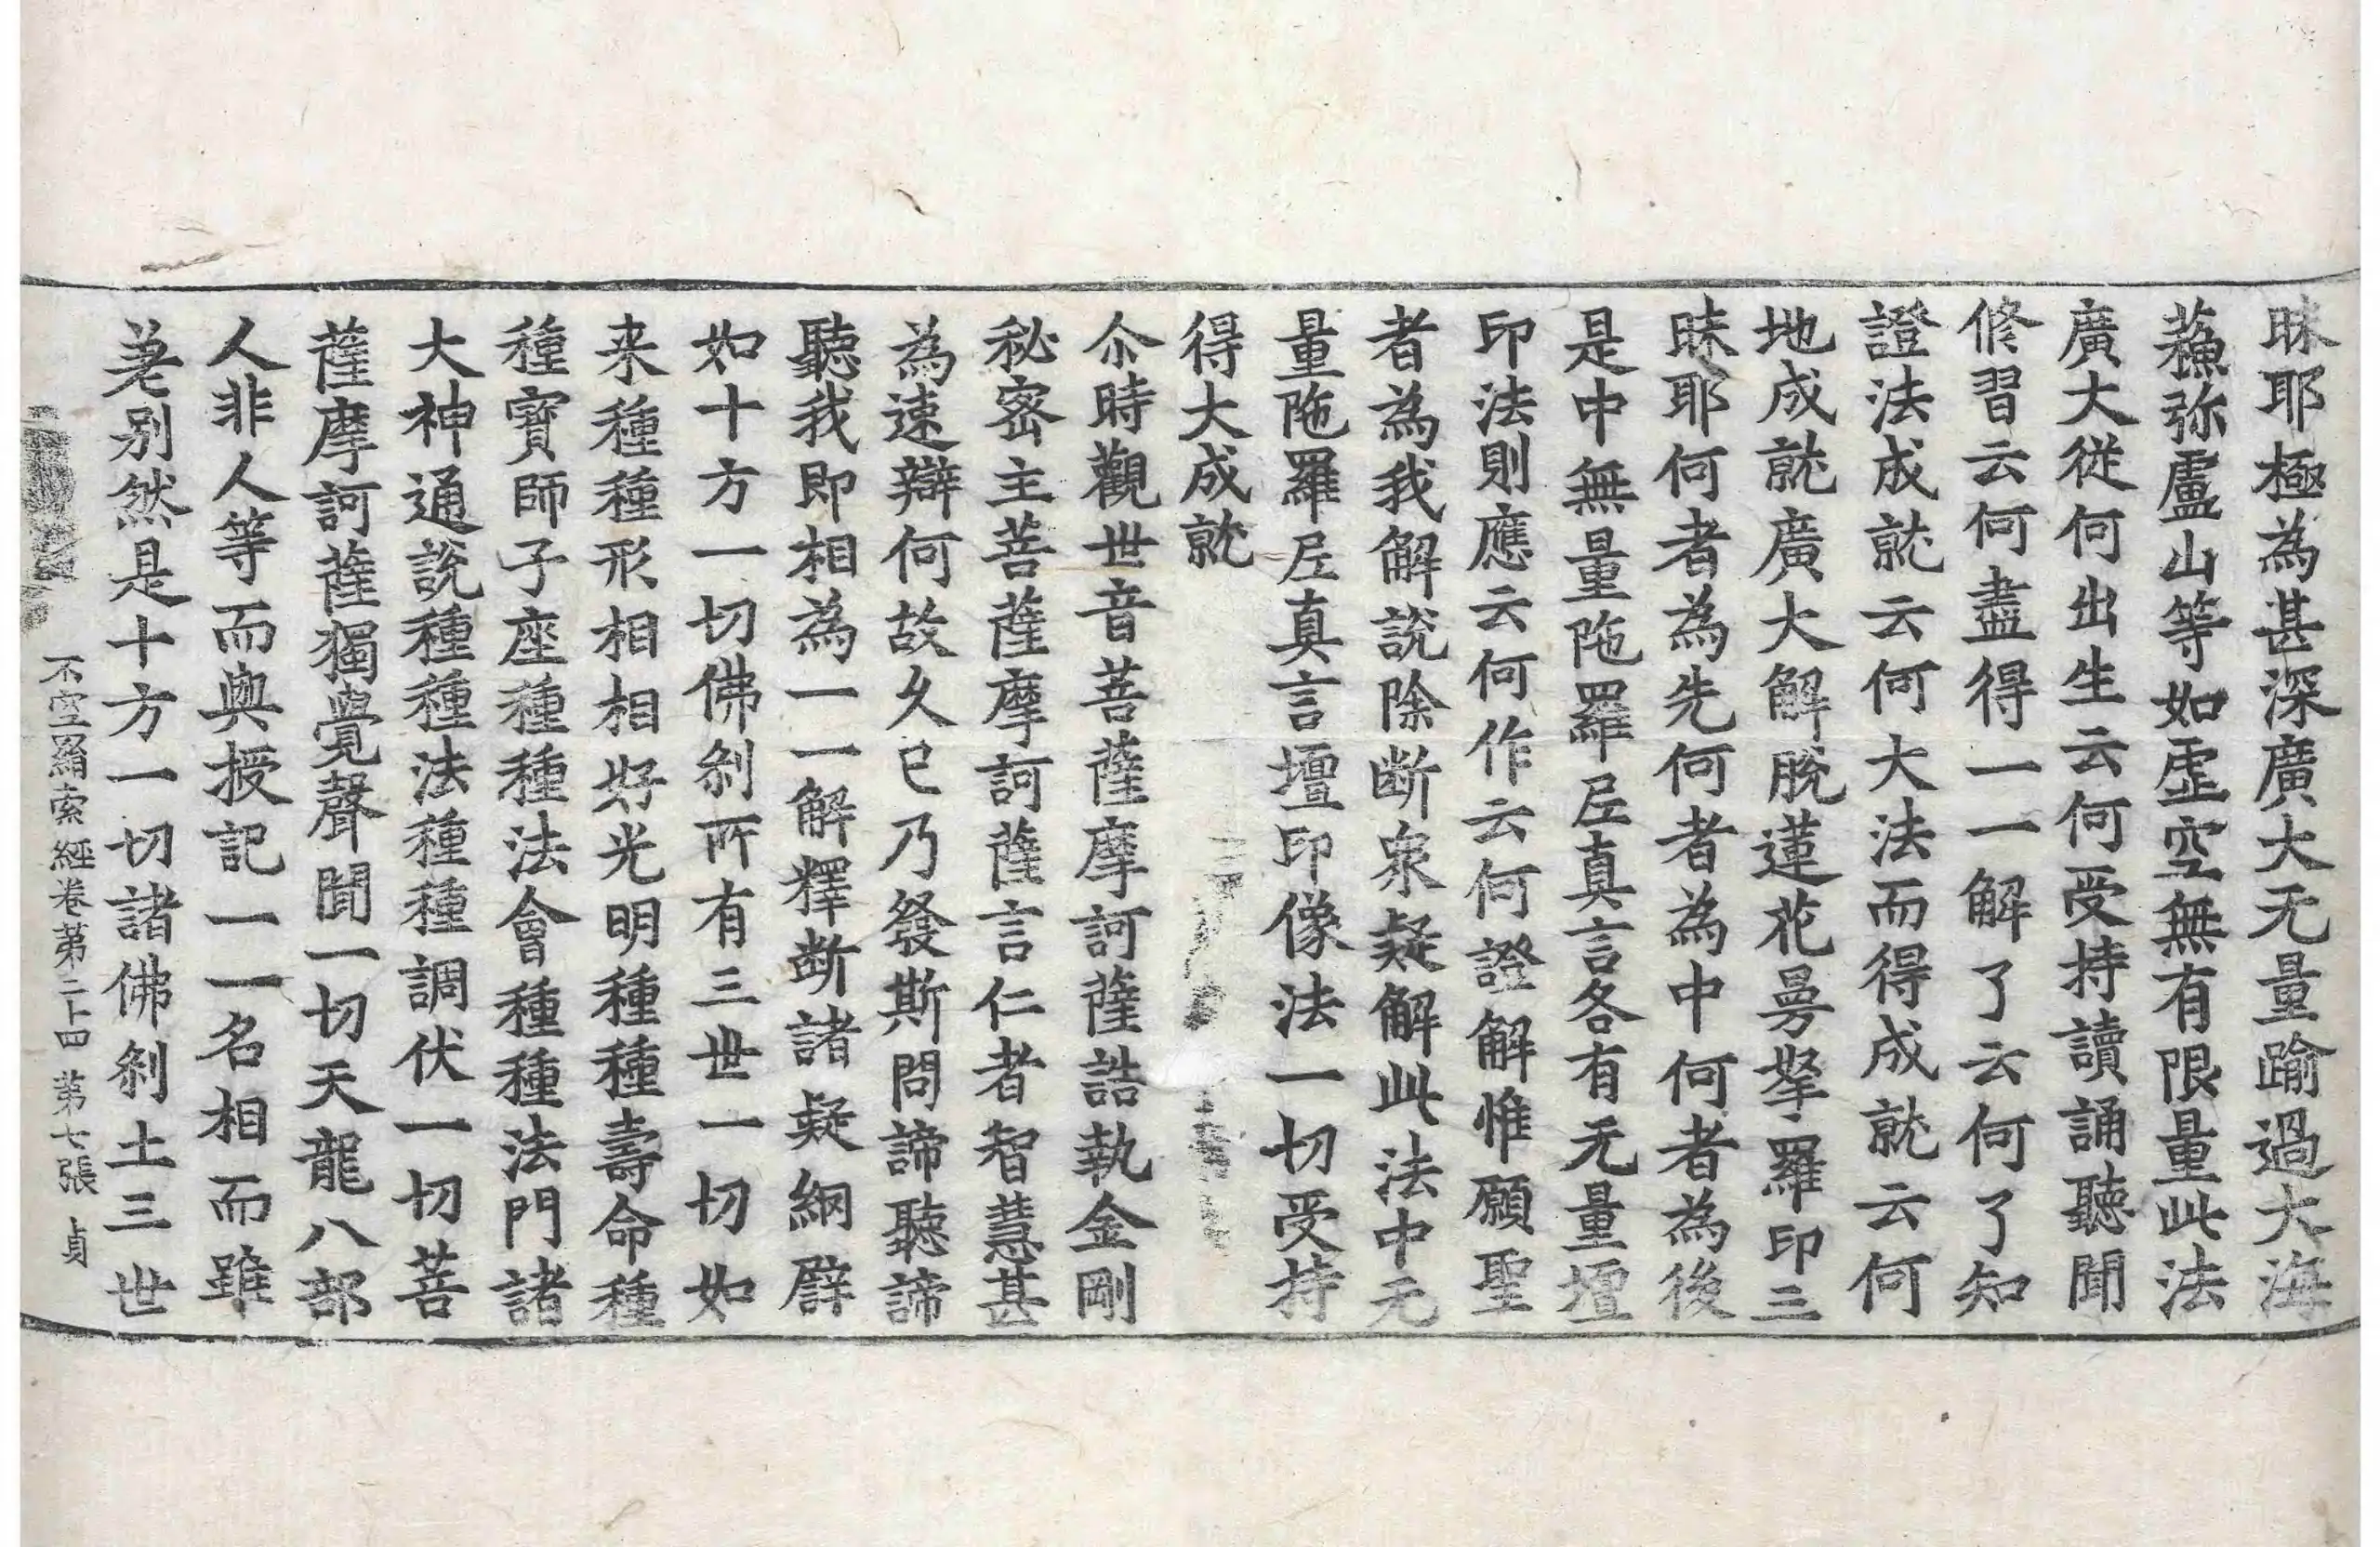 昧耶極為甚深廣大无量踰過大海
蘓弥盧山等如虛空無有限量此法
廣大從何出生云何受持讀誦聽聞
修習云何盡得一一解了云何了知
證法成就云何大法而得成就云何
地成就廣大解脫蓮花曼拏羅印三
昧耶何者為先何者為中何者為後
是中無量陁羅尼真言各有无量壇
印法則應云何作云何證解惟願聖
者為我解說除断衆疑解此法中无
量陁羅尼真言壇印像法一切受持
得大成就
尒時觀世音菩薩摩訶薩誥執金剛
秘密主菩薩摩訶薩言仁者智慧甚
為速辯何故久已乃發斯問諦聽諦
聽我即相為一一解釋断諸疑網譬
如十方一切佛刹所有三世一切如
来種種形相相好光明種種壽命種
種寶師子座種種法會種種法門諸
大神通說種種法種種調伏一切菩
薩摩訶薩獨覺聲聞一切天龍八部
人非人等而與授記一一名相而雖
差別然是十方一切諸佛刹土三世
不空羂索經卷第二十四 第七張 貞